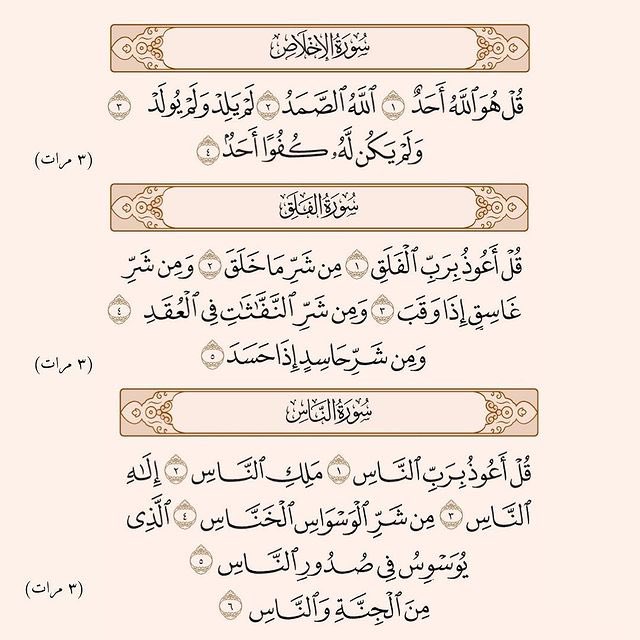 سُورَةُ الإِخْلَاصِ
قُلْ هُوَ ٱللَّهُ أَحَدٌ ١ ٱللَّهُ ٱلصَّمَدُ ٢ لَمْ يَلِدْ وَلَمْ يُولَدْ ٣
وَلَمْ يَكُن لَّهُۥ كُفُوًا أَحَدٌۢ ٤
(٣ مرات)
سُورَةُ الفَلَقِ
قُلْ أَعُوذُ بِرَبِّ ٱلْفَلَقِ ١ مِن شَرِّ مَا خَلَقَ ٢ وَمِن شَرِّ
غَاسِقٍ إِذَا وَقَبَ ٣ وَمِن شَرِّ ٱلنَّفَّٰثَٰتِ فِى ٱلْعُقَدِ ٤
وَمِن شَرِّ حَاسِدٍ إِذَا حَسَدَ ٥
(٣ مرات)
سُورَةُ النَّاسِ
قُلْ أَعُوذُ بِرَبِّ ٱلنَّاسِ ١ مَلِكِ ٱلنَّاسِ ٢ إِلَٰهِ
ٱلنَّاسِ ٣ مِن شَرِّ ٱلْوَسْوَاسِ ٱلْخَنَّاسِ ٤ ٱلَّذِى
يُوَسْوِسُ فِى صُدُورِ ٱلنَّاسِ ٥
مِنَ ٱلْجِنَّةِ وَٱلنَّاسِ ٦
(٣ مرات)